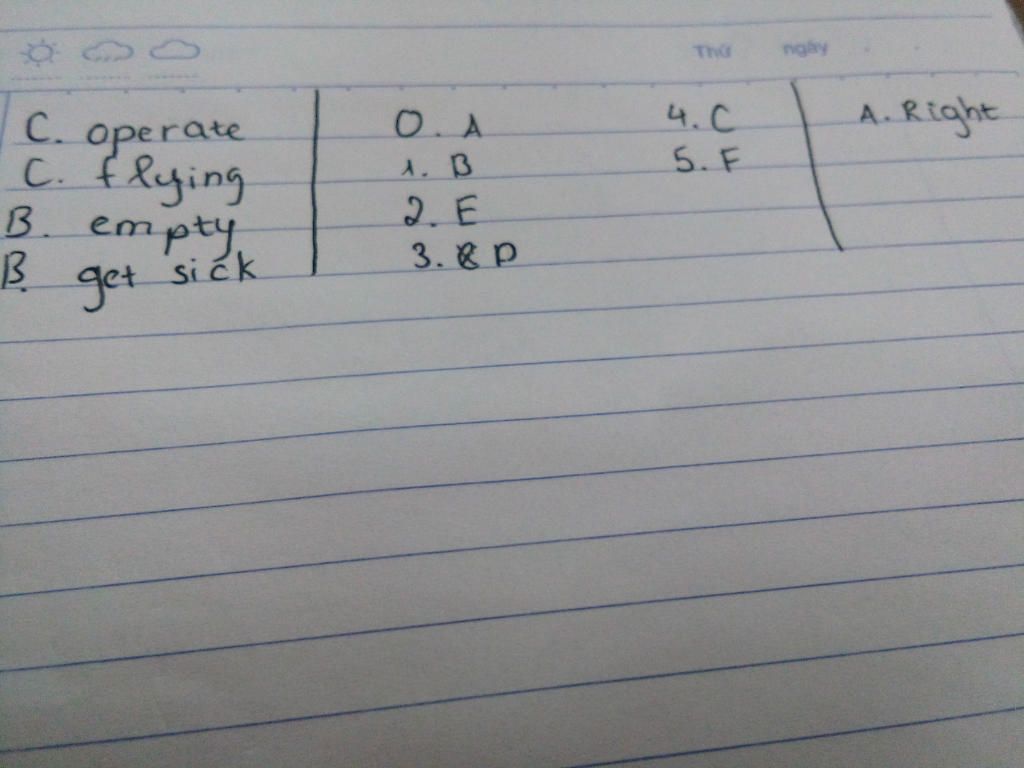 Thứ ngày
C. operate
C. flying
B. empty
B. get sick
0. A
1. B
2. E
3. D
4. C
5. F
A. Right